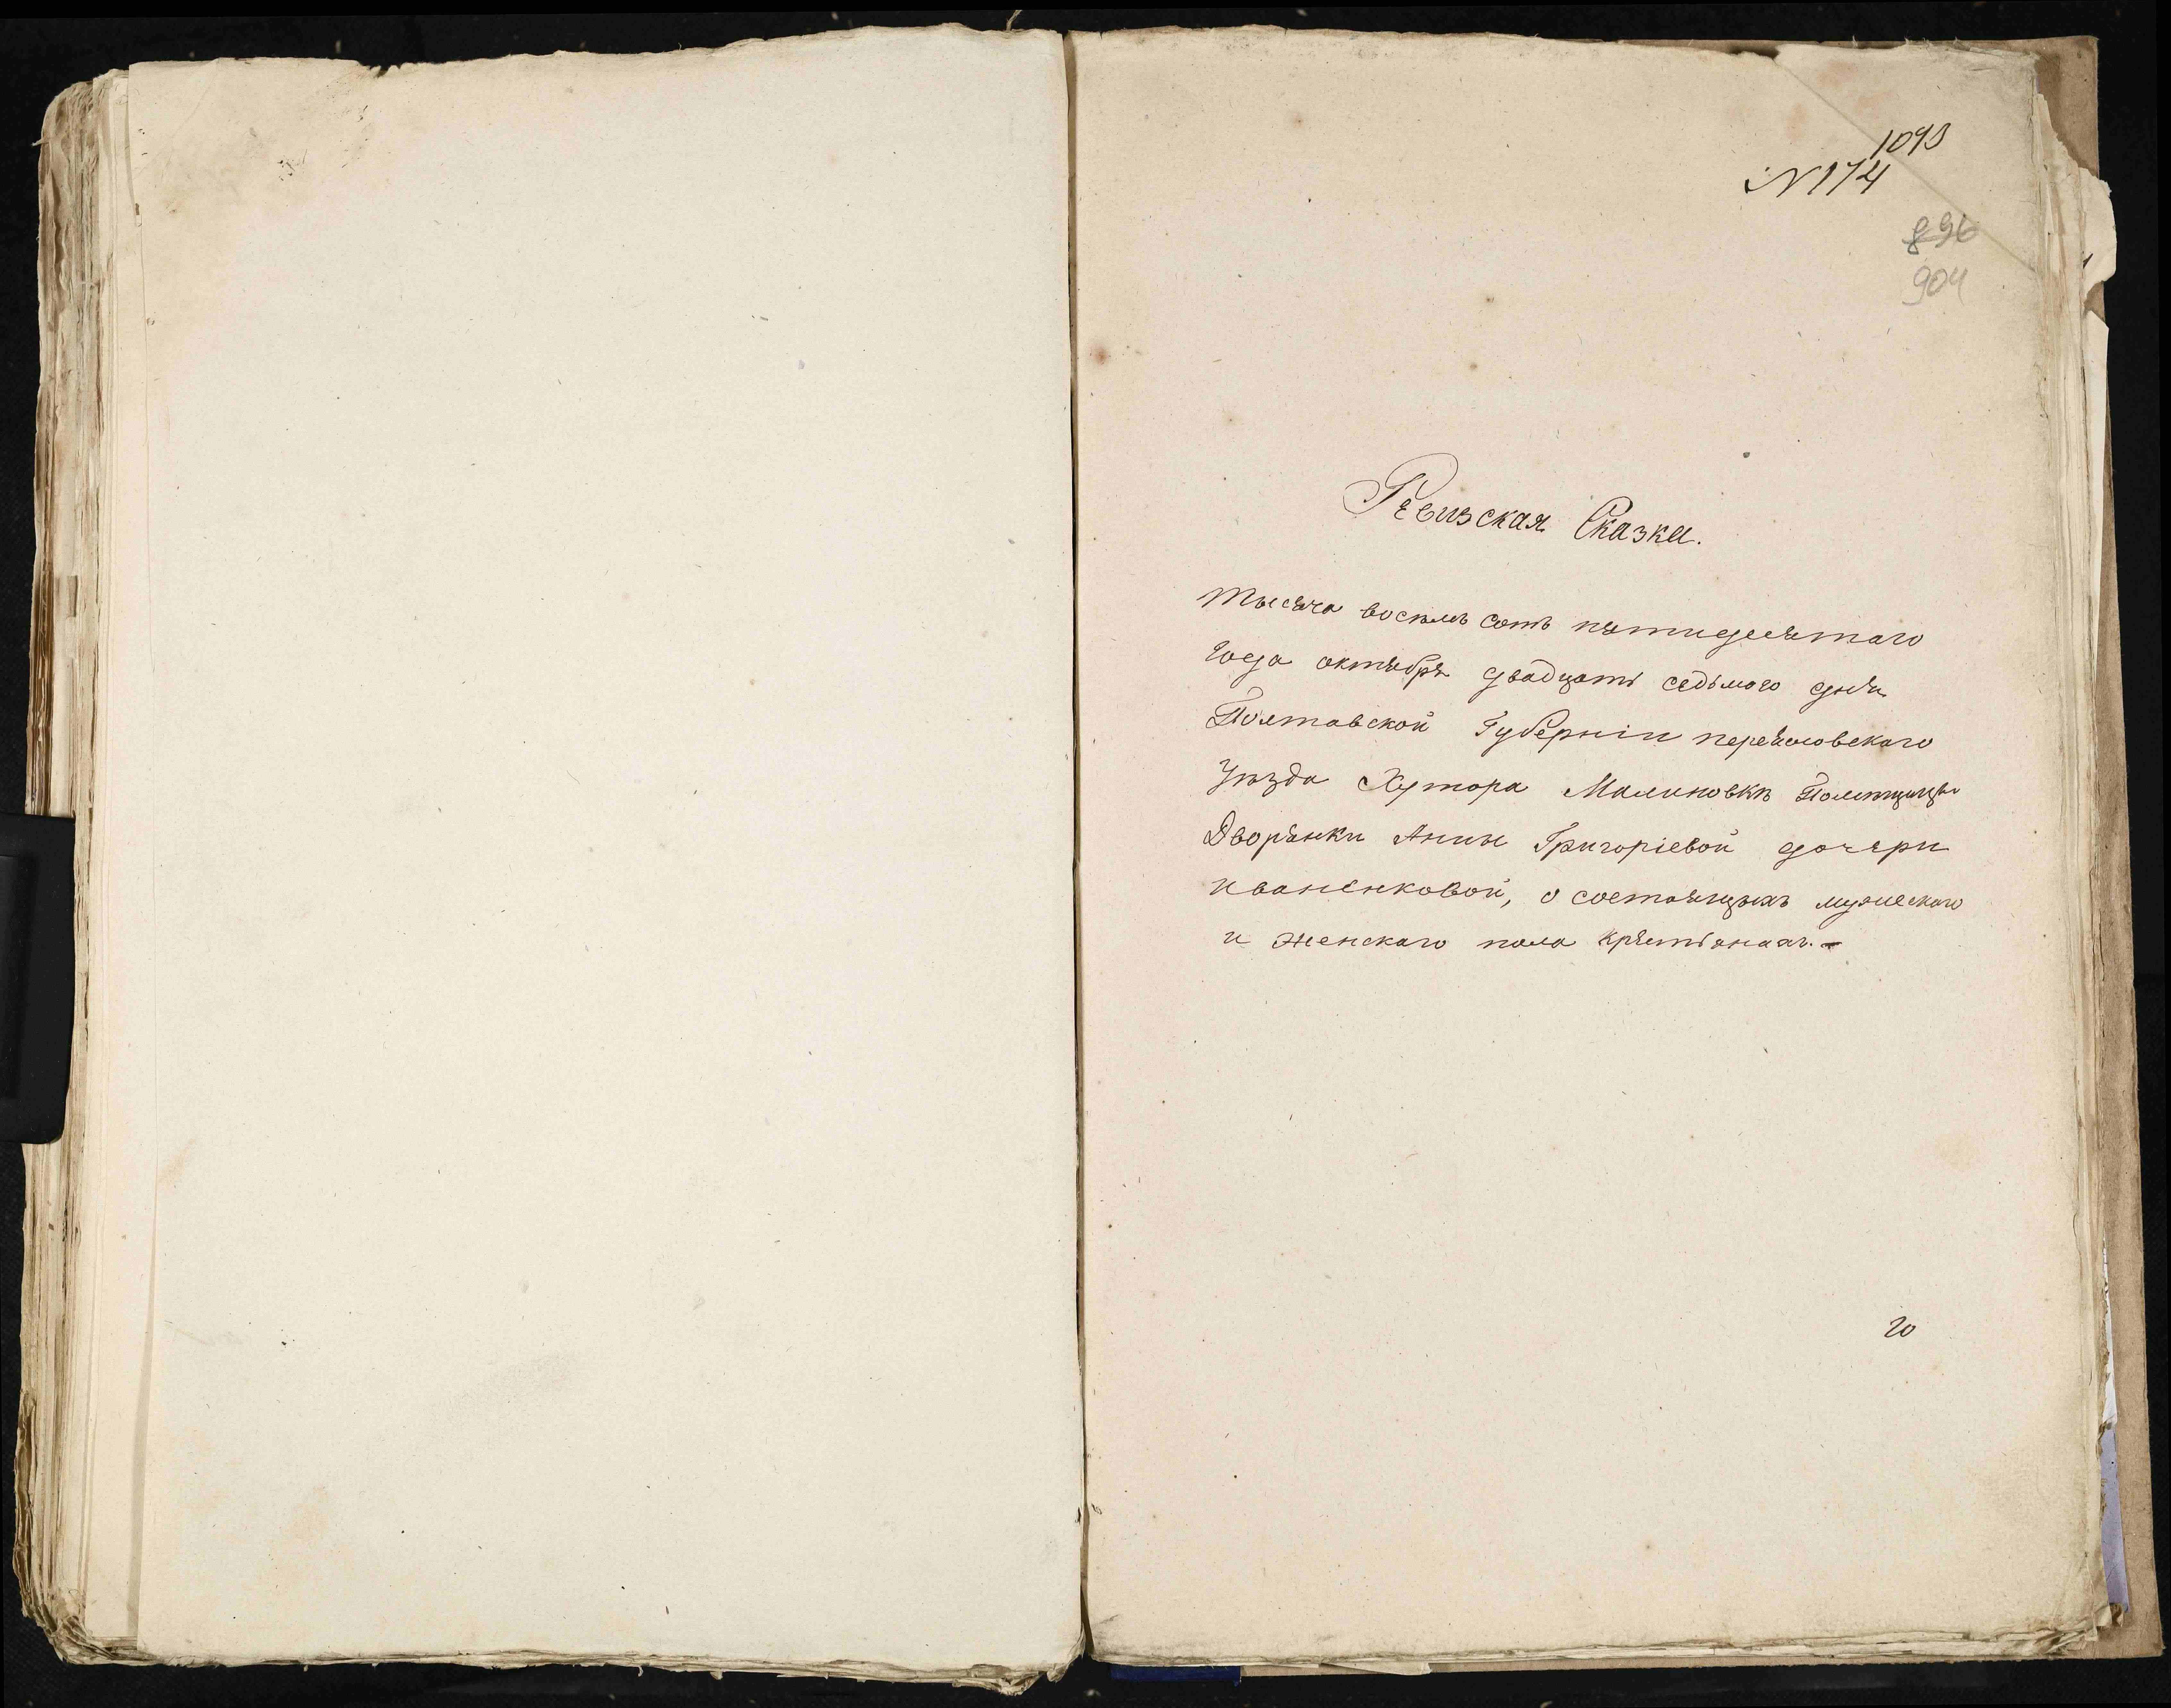 1093
N 174
896
904
Ревизская Сказка.
Тысяча восемь сотъ пятидесятаго
года октября двадцать седьмого дня
Полтавской Губерніи переяловскаго
Уѣзда Хутора Малиновки Помѣщицы
Дворянки Анны Григоріевой дочери
иваненковой, о состоящихъ мужескаго
и женскаго пола крестьянахъ. –
20